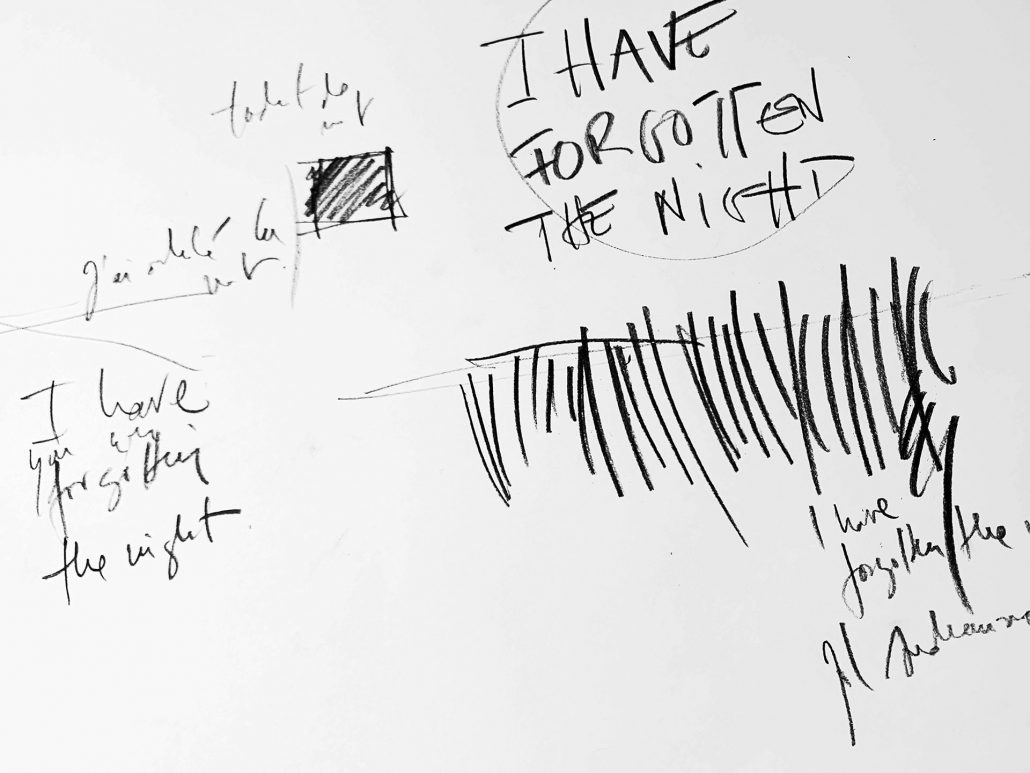 I HAVE
FORGOTTEN
THE NIGHT
j'ai oublié la
nuit
I have
forgotten
the night
I have
forgotten the